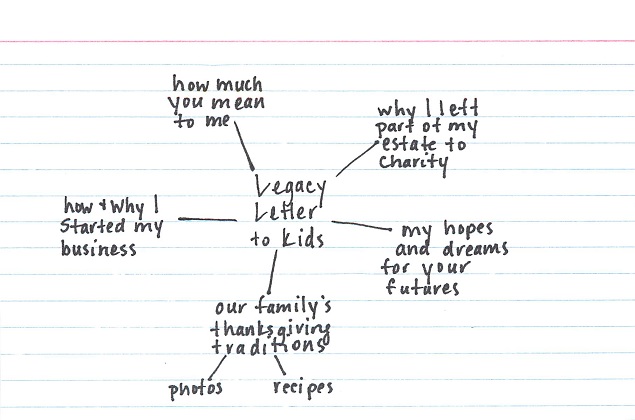 how much
you mean
to me
why I left
part of my
estate to
charity
Legacy
Letter
to kids
how + Why I
started my
business
my hopes
and dreams
for your
futures
our family's
thanksgiving
traditions
photos
recipes